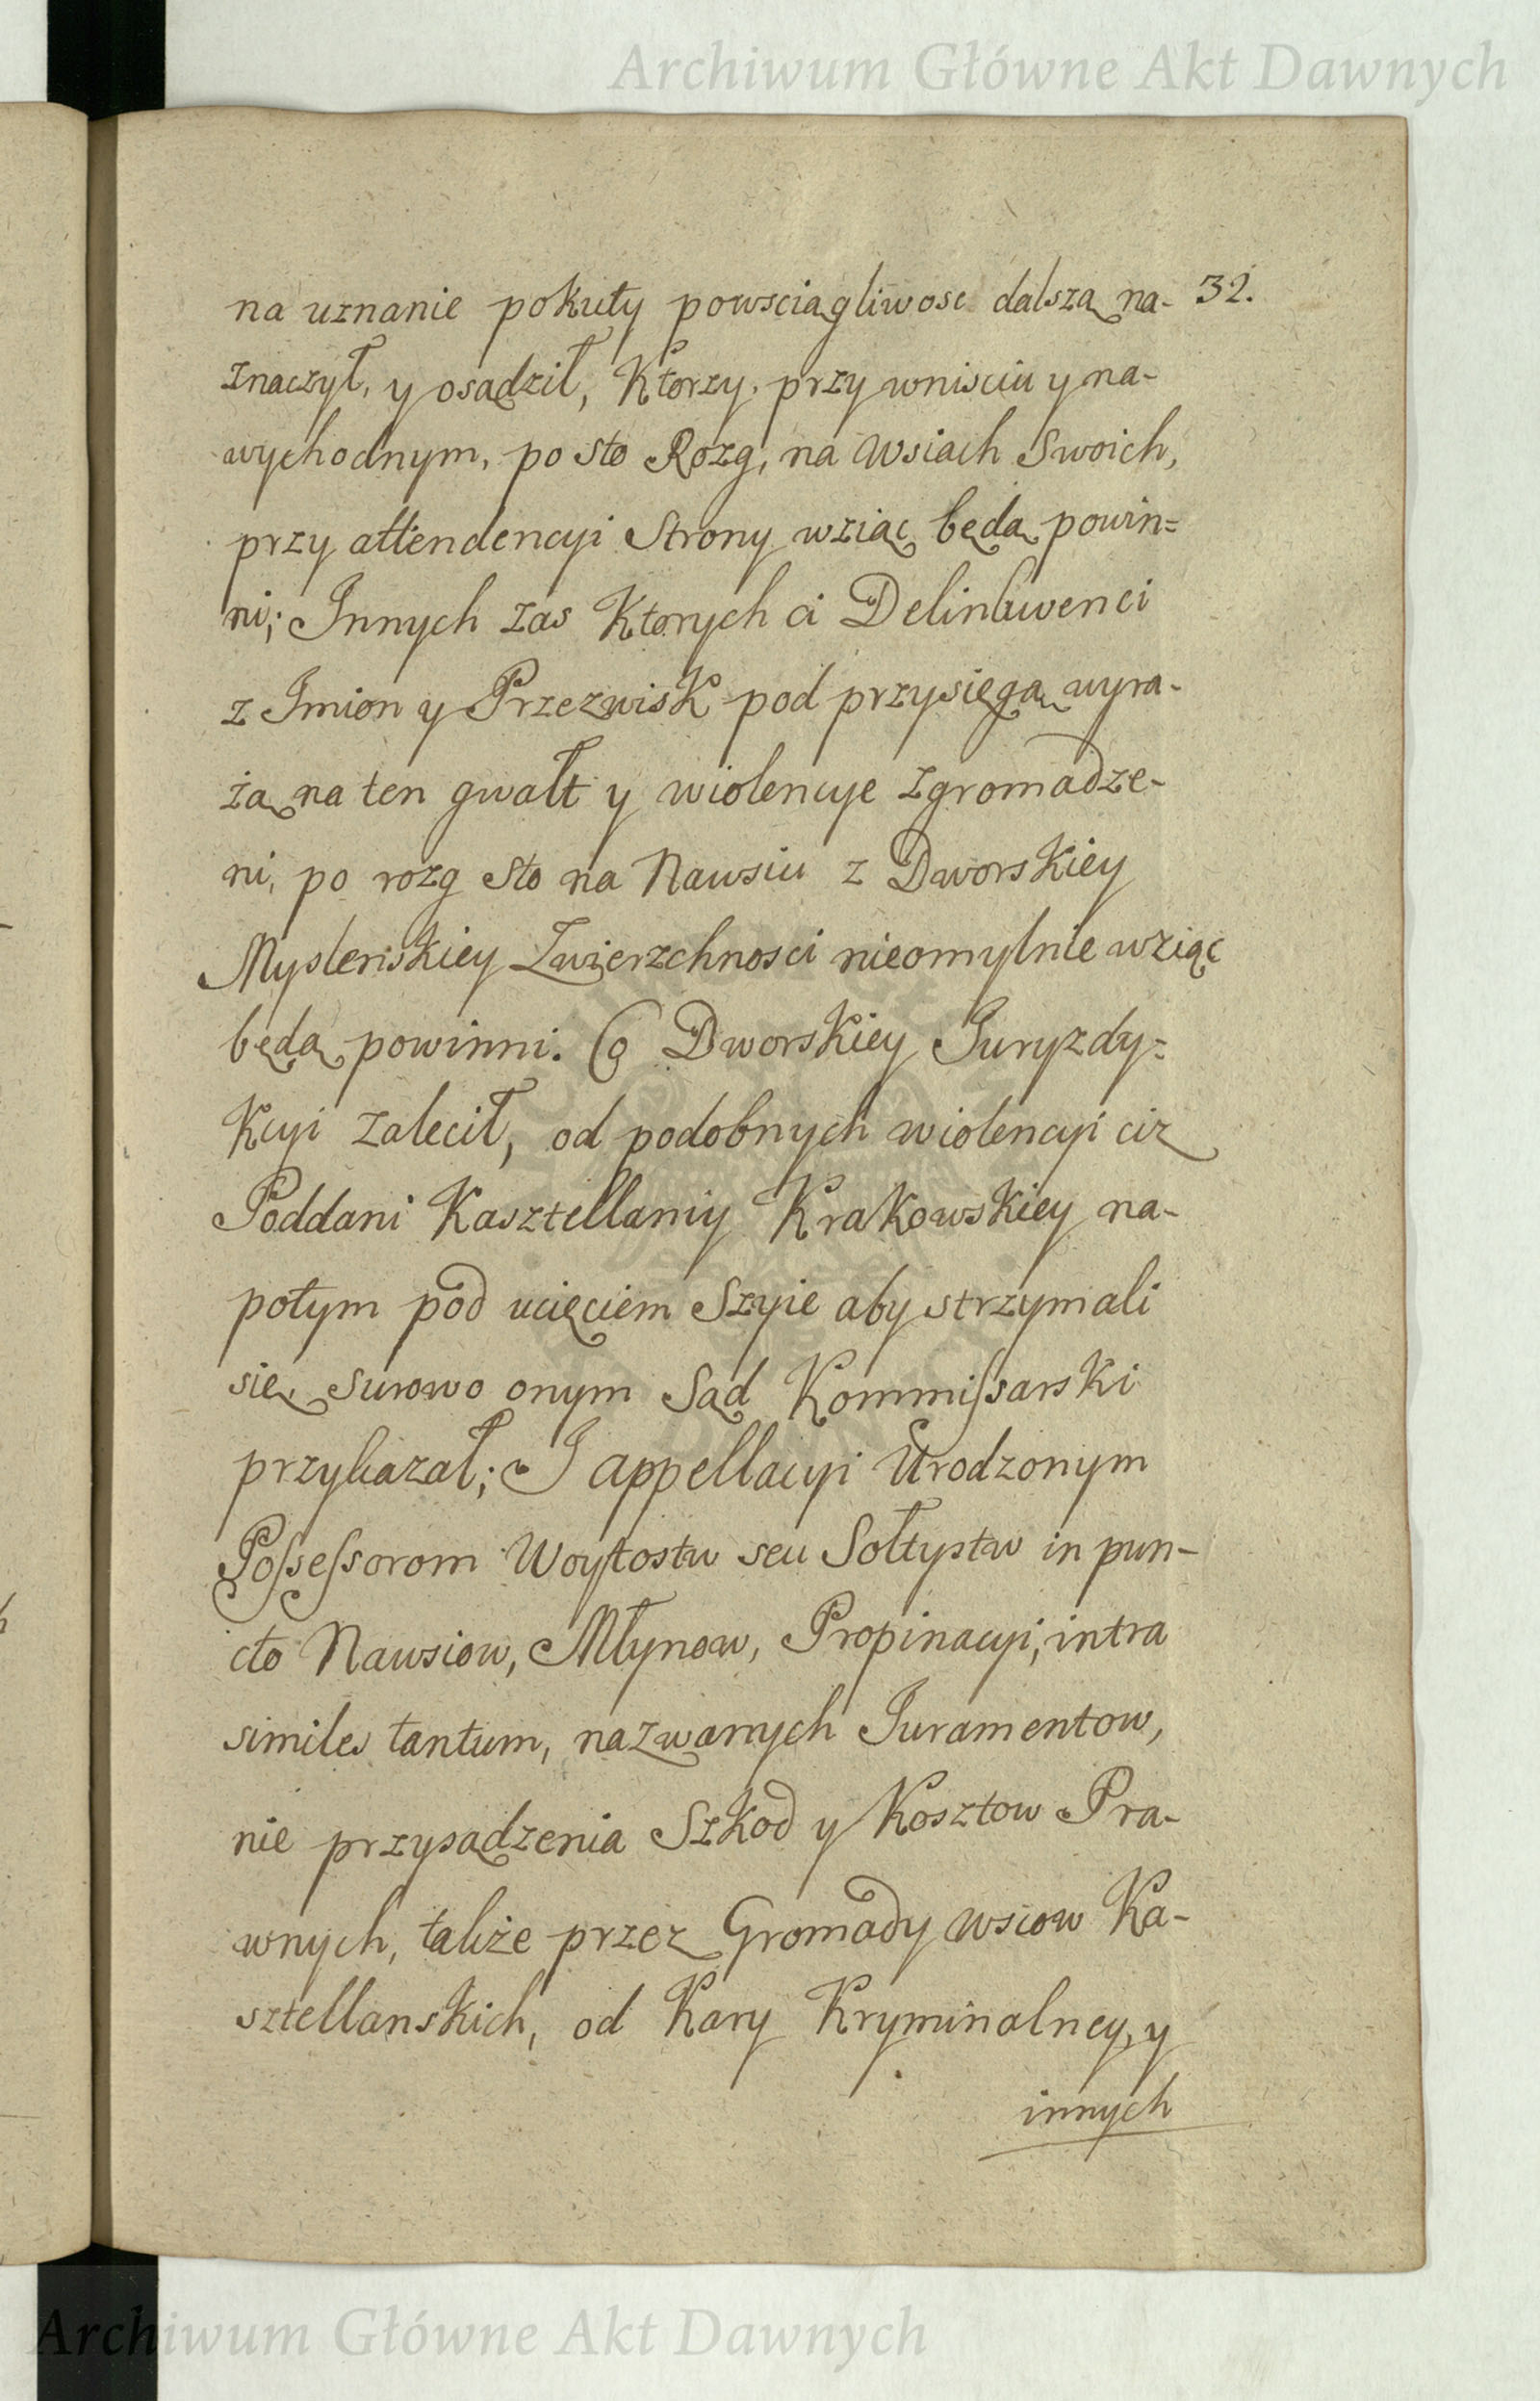 Archiwum Główne Akt Dawnych
na uznanie pokuty powsciągliwosc dalszą na- 32.
znaczył, y osądził, Ktorzy, przy wnisciu y na-
wychodnym, po sto Rozg, na Wsiach Swoich,
przy attendencyi Strony wziąc będą powin=
ni; Innych zas Ktorych ci Delinkwenci
z Imion y Przezwisk pod przysięgą wyra-
żą na ten gwałt y wiolencye zgromadze-
ni, po rozg sto na Nawsiu z Dworskiey
Myslenskiey Zwierzchnosci nieomylnie wziąc
będą powinni. Co Dworskiey Juryzdy=
Kcyi zalecił, od podobnych wiolencyi ciz
Poddani Kasztellaniy Krakowskiey na-
potym pod ucięciem Szyie aby strzymali
się, surowo onym Sąd Kommissarski
przykazał; I appellacyi Urodzonym
Possessorom Woytostw seu Sołtystw in pun-
cto Nawsiow, Młynow, Propinacyi, intra
similes tantum, nazwanych Juramentow,
nie przysądzenia Szkod y Kosztow Pra-
wnych, także przez Gromady wsiow Ka-
sztellanskich, od Kary Kryminalney, y
innych
Archiwum Główne Akt Dawnych